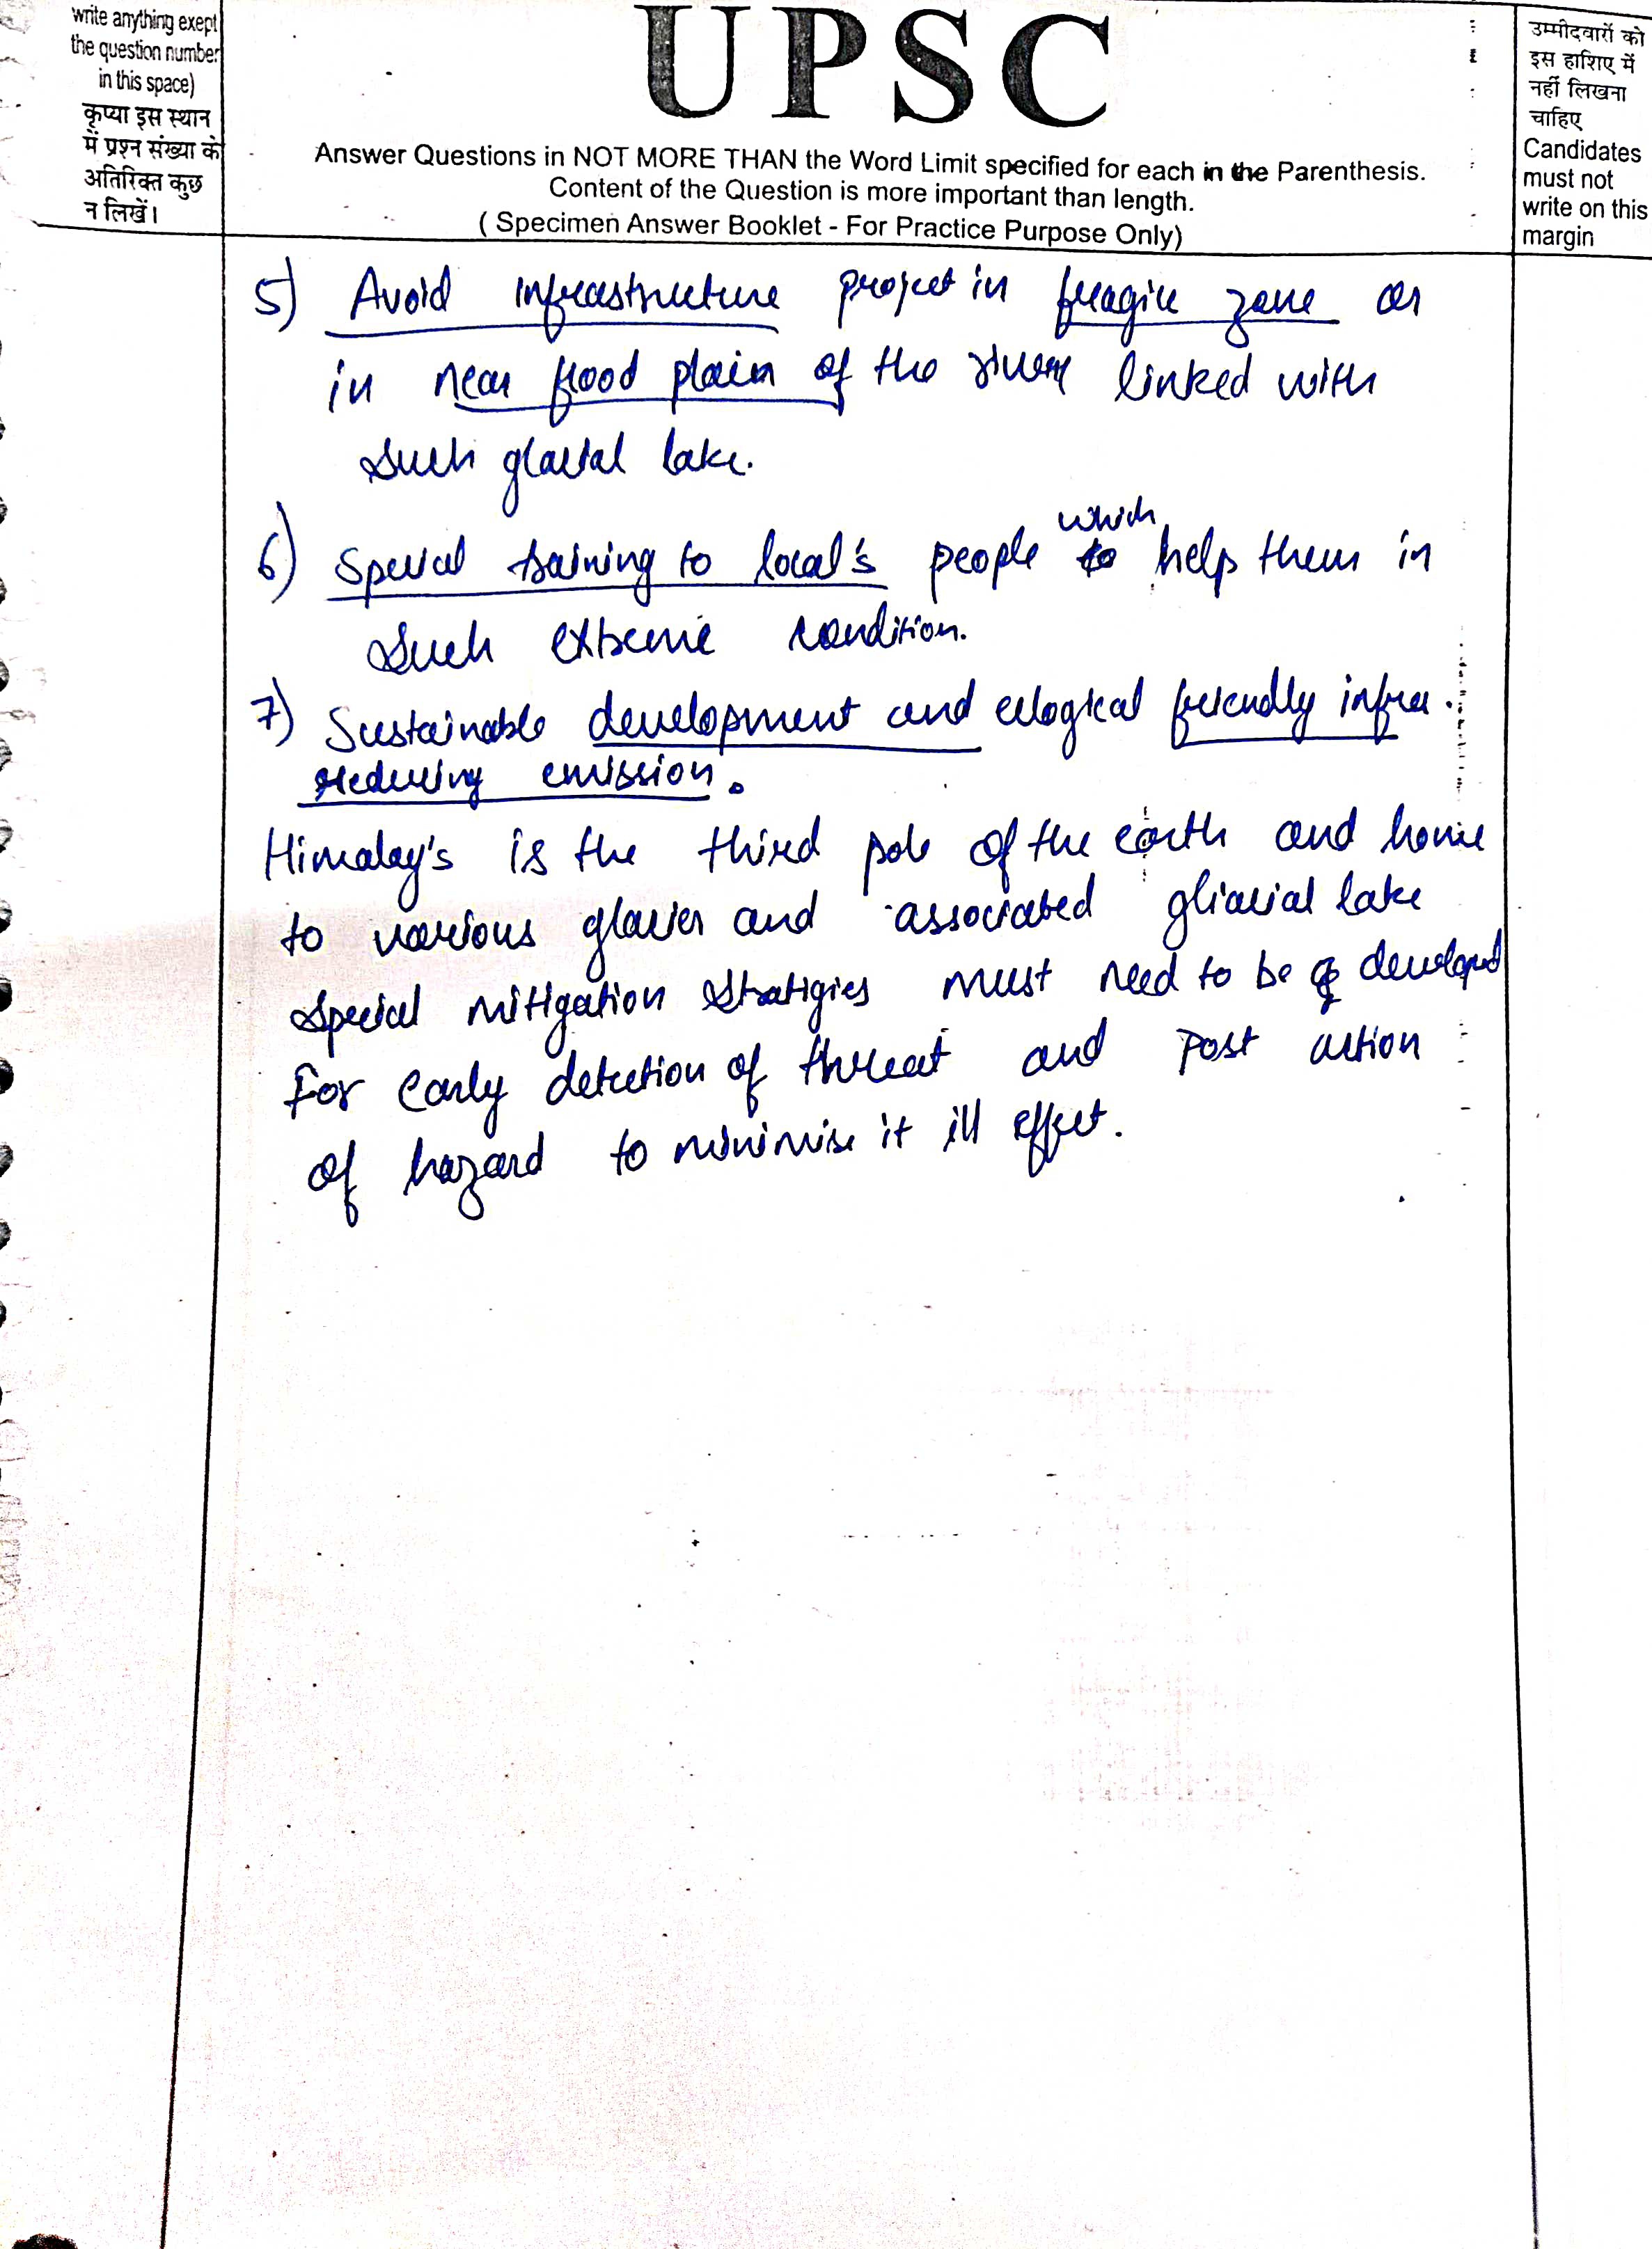 write anything exept
the question number
in this space)
कृप्या इस स्थान
में प्रश्न संख्या के
अतिरिक्त कुछ
न लिखें।
UPSC
Answer Questions in NOT MORE THAN the Word Limit specified for each in the Parenthesis.
Content of the Question is more important than length.
( Specimen Answer Booklet - For Practice Purpose Only)
उम्मीदवारों को
इस हाशिए में
नहीं लिखना
चाहिए
Candidates
must not
write on this
margin
5) Avoid infrastructure project in fragile zone or
in near flood plain of the river linked with
such glacial lake.
6) Special training to local's people which help them in
such extreme condition.
7) Sustainable development and ecological friendly infra.
reducing emission.
Himalay's is the third pole of the earth and home
to various glacier and associated gliacial lake
special mitigation stratigies must need to be developed
For early detection of threat and post action
of hazard to minimise it ill effect.